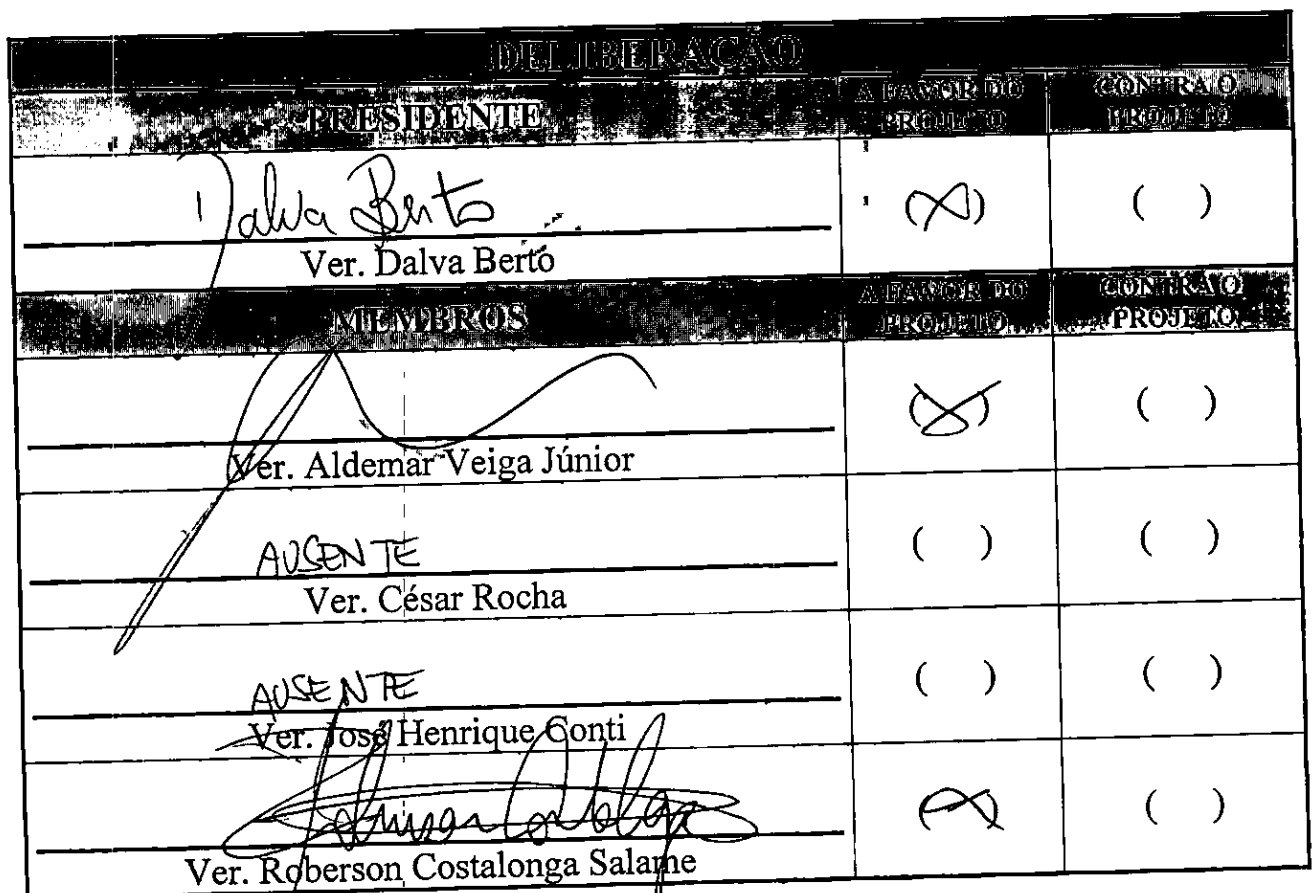 DELIBERAÇÃO
PRESIDENTE A FAVOR DO PROJETO CONTRA O PROJETO
Dalva Berto (X) ( )
Ver. Dalva Berto
MEMBROS A FAVOR DO PROJETO CONTRA O PROJETO
(X) ( )
Ver. Aldemar Veiga Júnior
AUSENTE ( ) ( )
Ver. César Rocha
AUSENTE ( ) ( )
Ver. José Henrique Conti
(X) ( )
Ver. Roberson Costalonga Salame